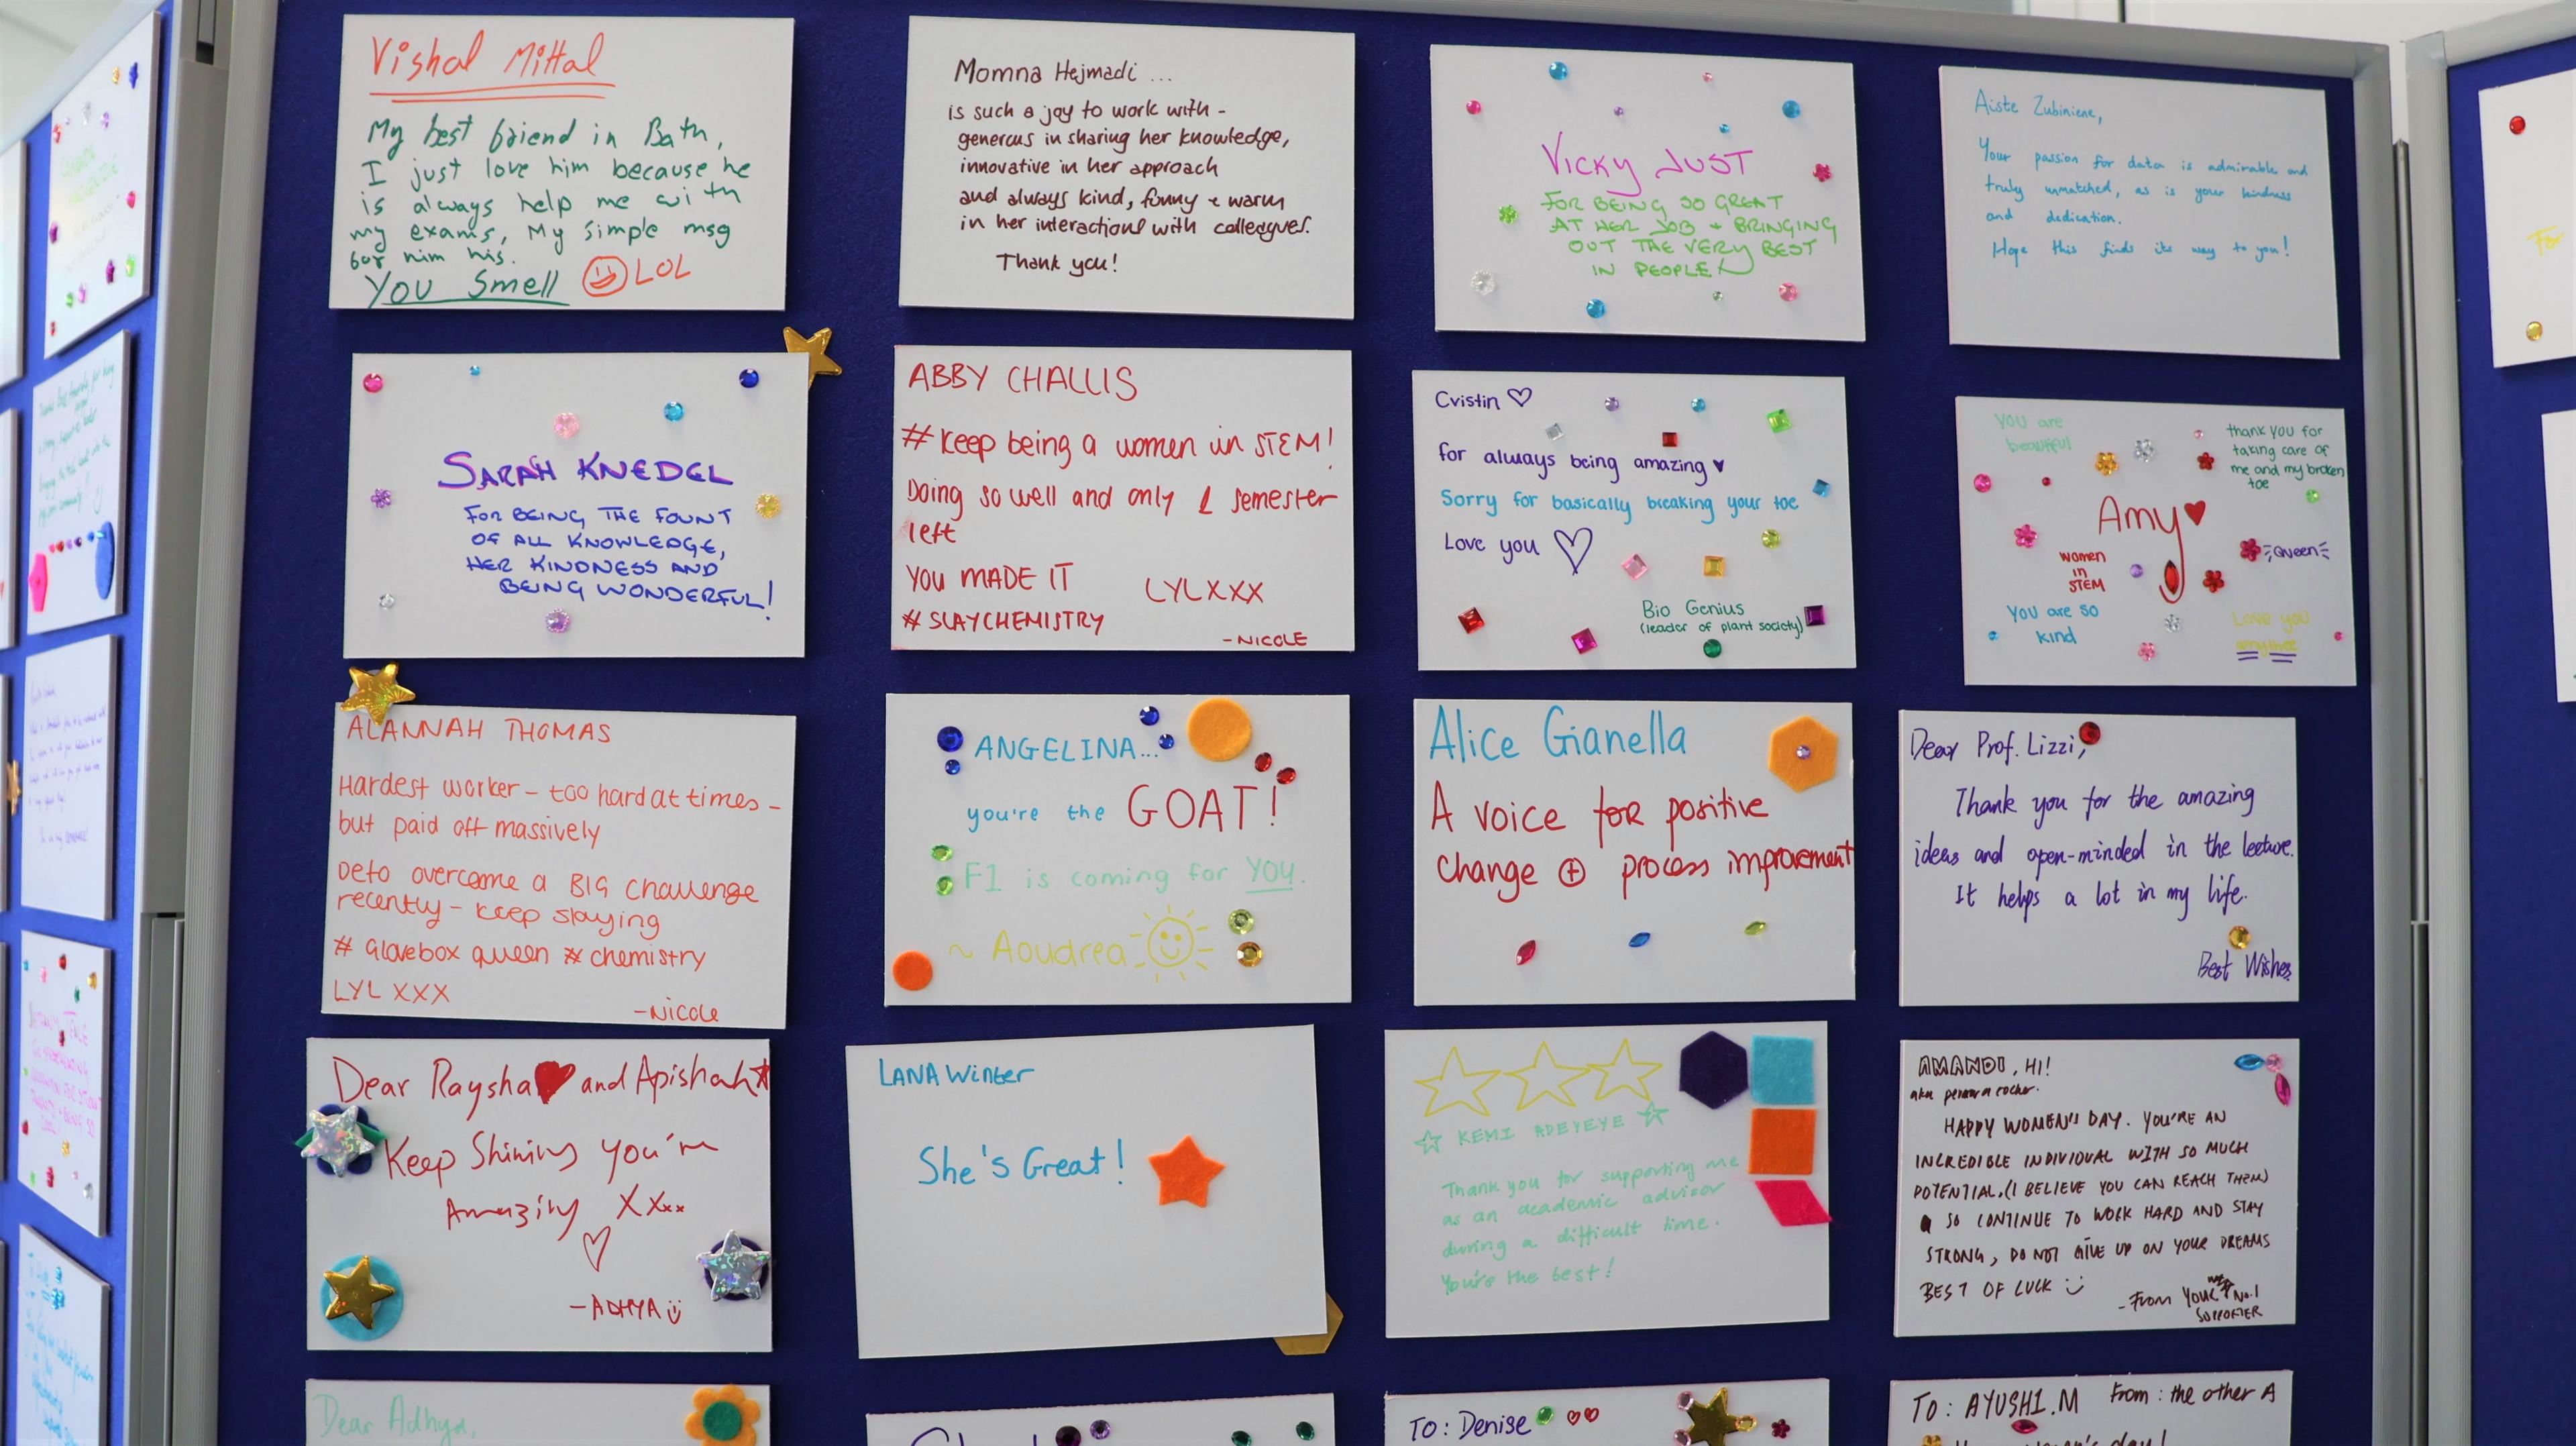 Vishal Mittal
My best friend in Bath,
I just love him because he
is always help me with
my exams, My simple msg
for him his.
You Smell LOL
Momna Hejmadi ...
is such a joy to work with -
generous in sharing her knowledge,
innovative in her approach
and always kind, funny + warm
in her interactions with colleagues.
Thank you!
VICKY JUST
FOR BEING SO GREAT
AT HER JOB + BRINGING
OUT THE VERY BEST
IN PEOPLE!
Aiste Zubiniene,
Your passion for data is admirable and
truly unmatched, as is your kindness
and dedication.
Hope this finds its way to you!
SARAH KNEDEL
FOR BEING THE FOUNT
OF ALL KNOWLEDGE,
HER KINDNESS AND
BEING WONDERFUL!
ABBY CHALLIS
# keep being a women in STEM!
Doing so well and only 1 semester
left
YOU MADE IT LYLXXX
# SLAYCHEMISTRY
-NICOLE
Cristin ♡
for always being amazing ♥
Sorry for basically breaking your toe
Love you ♡
Bio Genius
(leader of plant society)
YOU are
beautiful
thank YOU for
taking care of
me and my broken
toe
Amy ♥
women
in
STEM
Queen
YOU are so
kind
Love you
ALANNAH THOMAS
Hardest worker - too hard at times -
but paid off massively
Deto overcome a BIG challenge
recently - keep slaying
# Glovebox queen # chemistry
LYL XXX
-Nicole
ANGELINA...
you're the GOAT!
F1 is coming for YOU.
~ Aoudrea
Alice Gianella
A voice for positive
change + process improvement
Dear Prof. Lizzi,
Thank you for the amazing
ideas and open-minded in the lecture.
It helps a lot in my life.
Best Wishes
Dear Raysha ♥ and Apishah
Keep Shining you're
Amazing XXxx
♡
-ADHYA
LANA Winter
She's Great!
☆ KEMI ADEYEYE ☆
Thank you for supporting me
as an academic advisor
during a difficult time.
You're the best!
AMANDI, HI!
aka
HAPPY WOMEN'S DAY. YOU'RE AN
INCREDIBLE INDIVIDUAL WITH SO MUCH
POTENTIAL, (I BELIEVE YOU CAN REACH THEM)
SO CONTINUE TO WORK HARD AND STAY
STRONG, DO NOT GIVE UP ON YOUR DREAMS
BEST OF LUCK
- From YOUR No.1
SUPPORTER
Dear Adhya,
TO: Denise ♡♡
TO: AYUSHI.M From: the other A